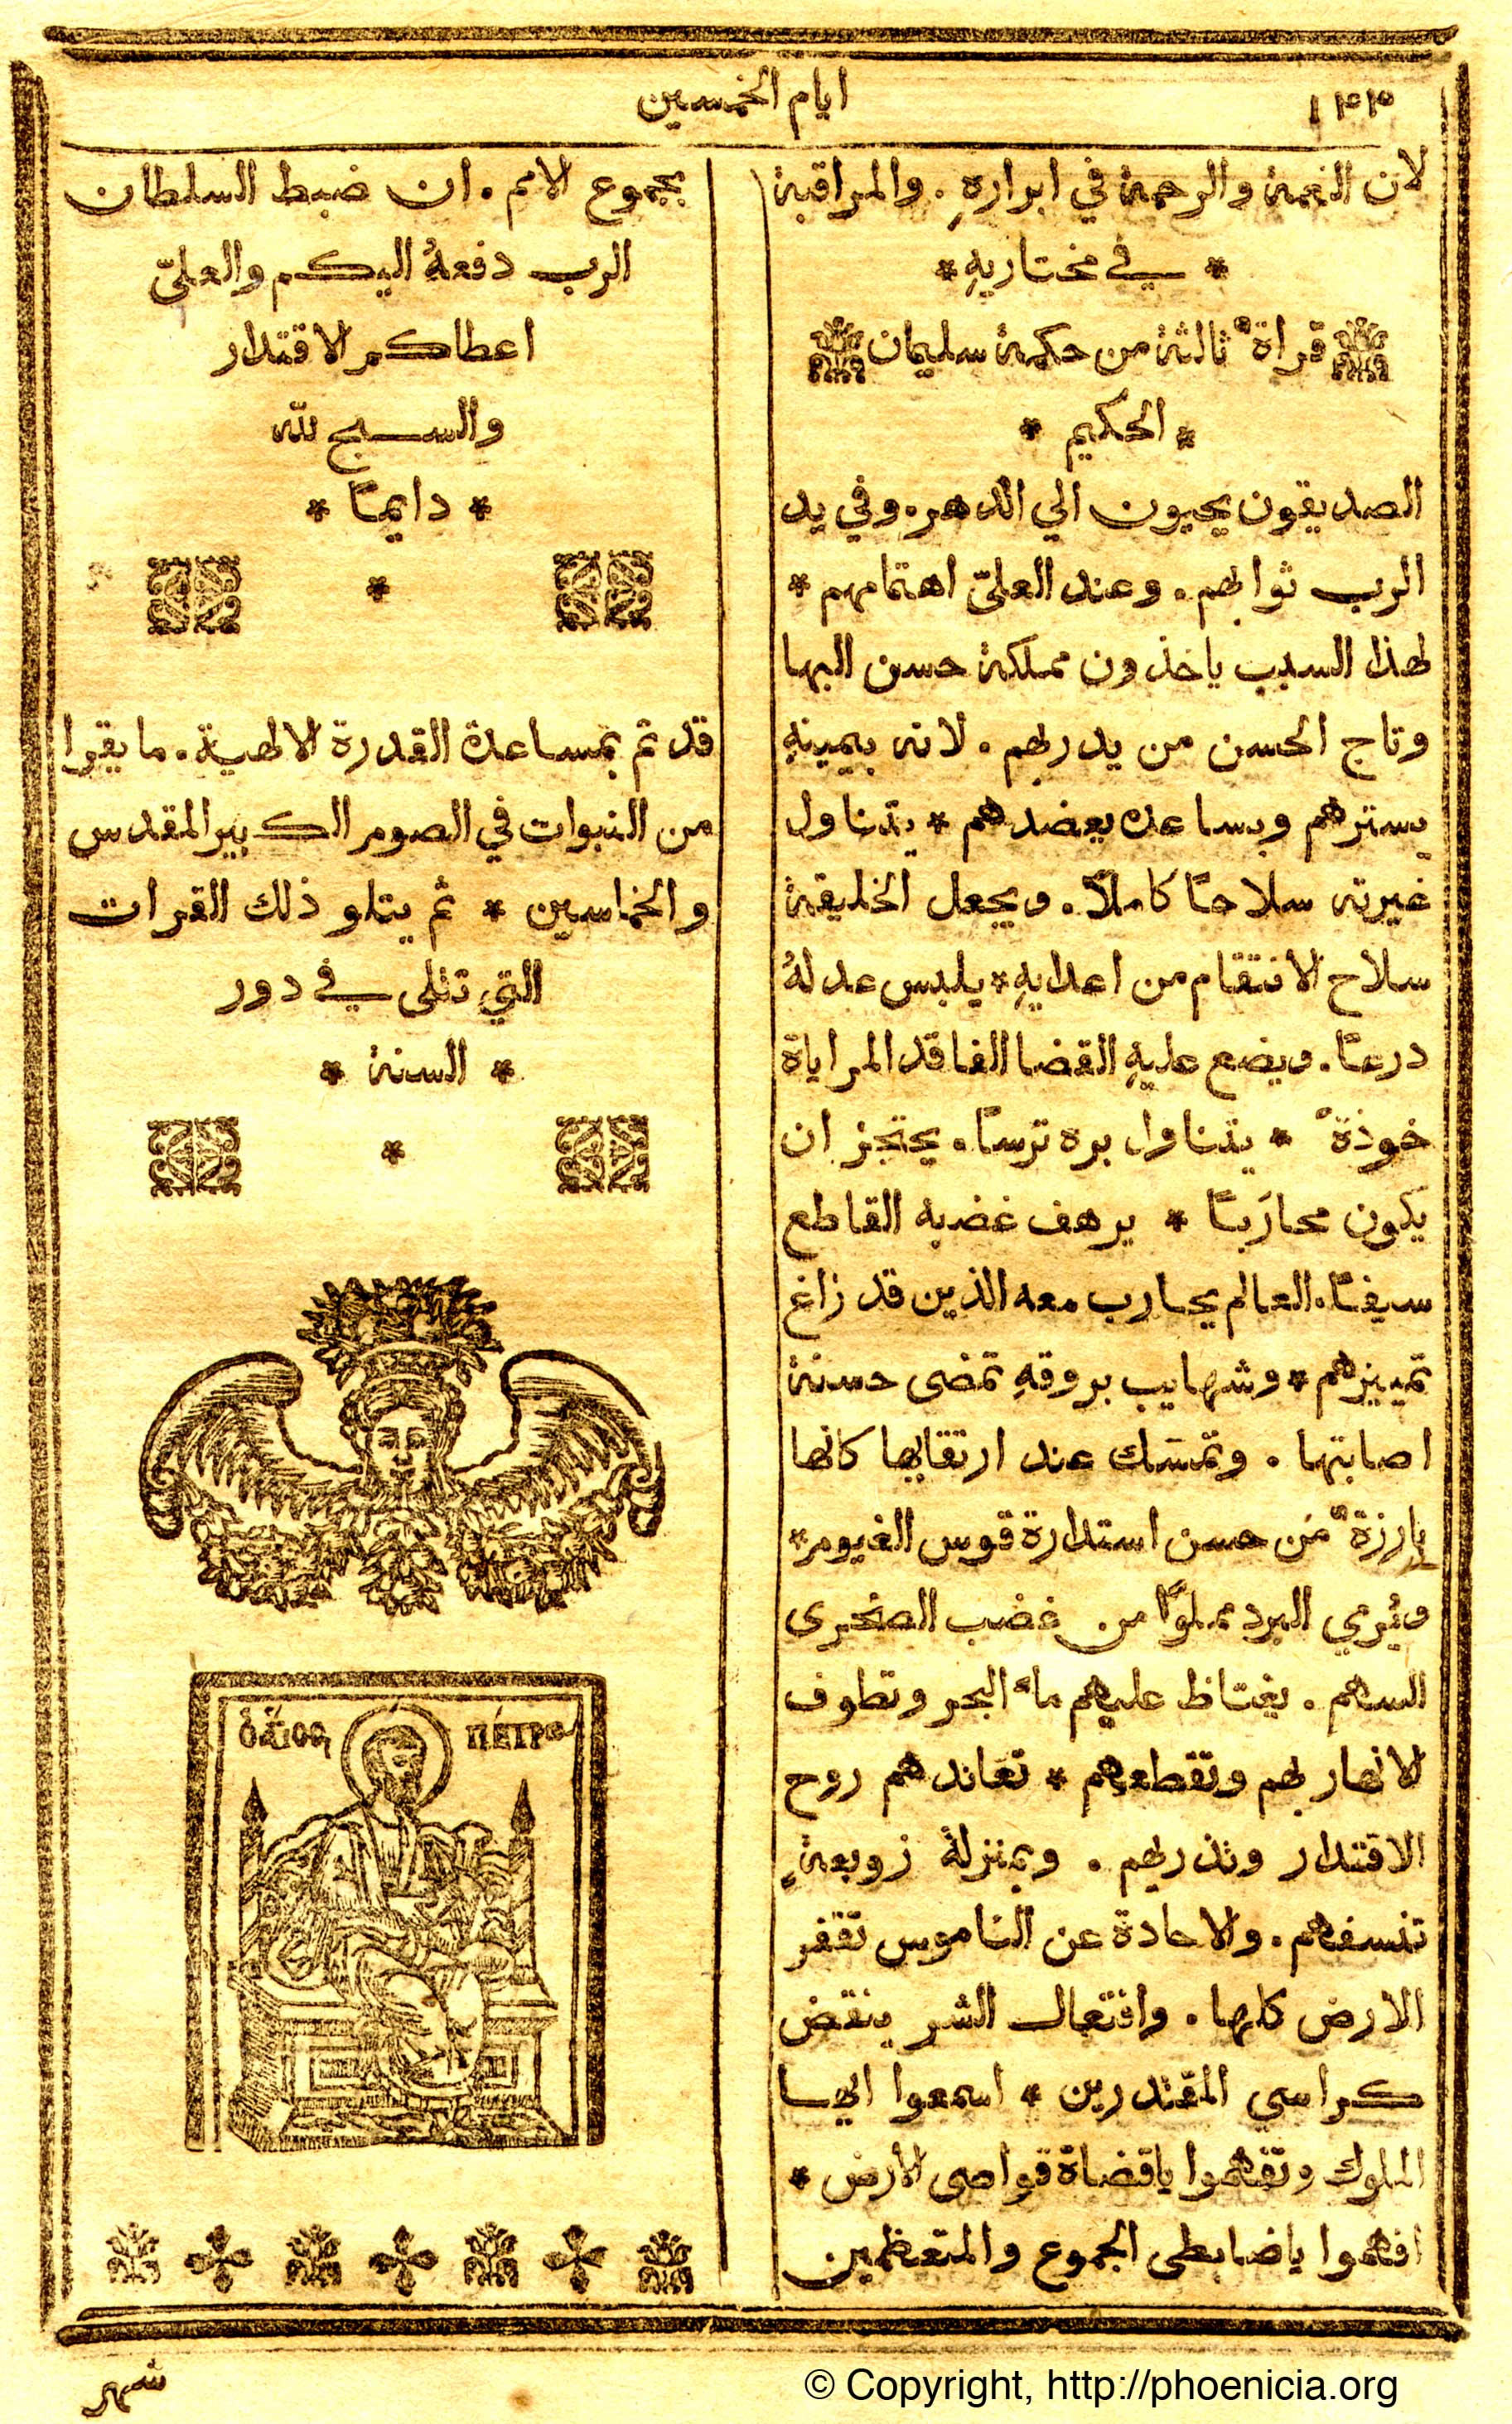 ١٣٣
ايام الخمسين
لان النعمة والرحمة في ابرارهِ. والمراقبة
* في مختاريهِ *
قراةٌ ثالثة من حكمة سليمان
* الحكيم *
الصديقون يحيون الي الدهر. وفي يد
الرب ثوابهم. وعند العليّ اهتمامهم *
لهذا السبب ياخذون مملكة حسن البها
وتاج الحسن من يد ربهم. لانه بيمينهِ
يسترهم وبساعده يعضدهم * يتناول
غيرته سلاحًا كاملاً. ويجعل الخليقة
سلاح الانتقام من اعدايهِ * يلبس عدلهُ
درعًا. ويضع عليهِ القضا الفاقد المراياة
خوذةً * يتناول بره ترسًا. يحتجز ان
يكون محارَبًا * يرهف غضبه القاطع
سيفًا. العالم يحارب معه الذين قد زاغ
تمييزهم * وشهايب بروقهِ تمضى حسنة
اصابتها. وتمسَك عند ارتقايها كانها
بارزةٌ من حسن استدارة قوس الغيوم *
ويُرمي البرد مملوًا من غضب الصخرى
السهم. يغتاظ عليهم ماءُ البحر وتطوف
الانهار بهم وتقطعهم * تعاندهم روح
الاقتدار وتذريهم. وبمنزلة زوبعةٍ
تنسفهم. والاحادة عن الناموس تقفر
الارض كلها. وافتعال الشر ينقض
كراسي المقتدرين * اسمعوا ايها
الملوك وتفهموا ياقضاة قواصي الارض *
افهموا ياضابطى الجموع والمتعظمين
بجموع الامم. ان ضبط السلطان
الرب دفعهُ اليكم والعليّ
اعطاكم الاقتدار
والسبح لله
* دايمًا *
*
قد تم بمساعدة القدرة الالهية. ما يقرا
من النبوات في الصوم الكبير المقدس
والخماسين * ثم يتلو ذلك القرات
التي تتلى في دور
* السنة *
*
ὁ ἅγιος ΠΈΤΡΟς
شهر
© Copyright, http://phoenicia.org